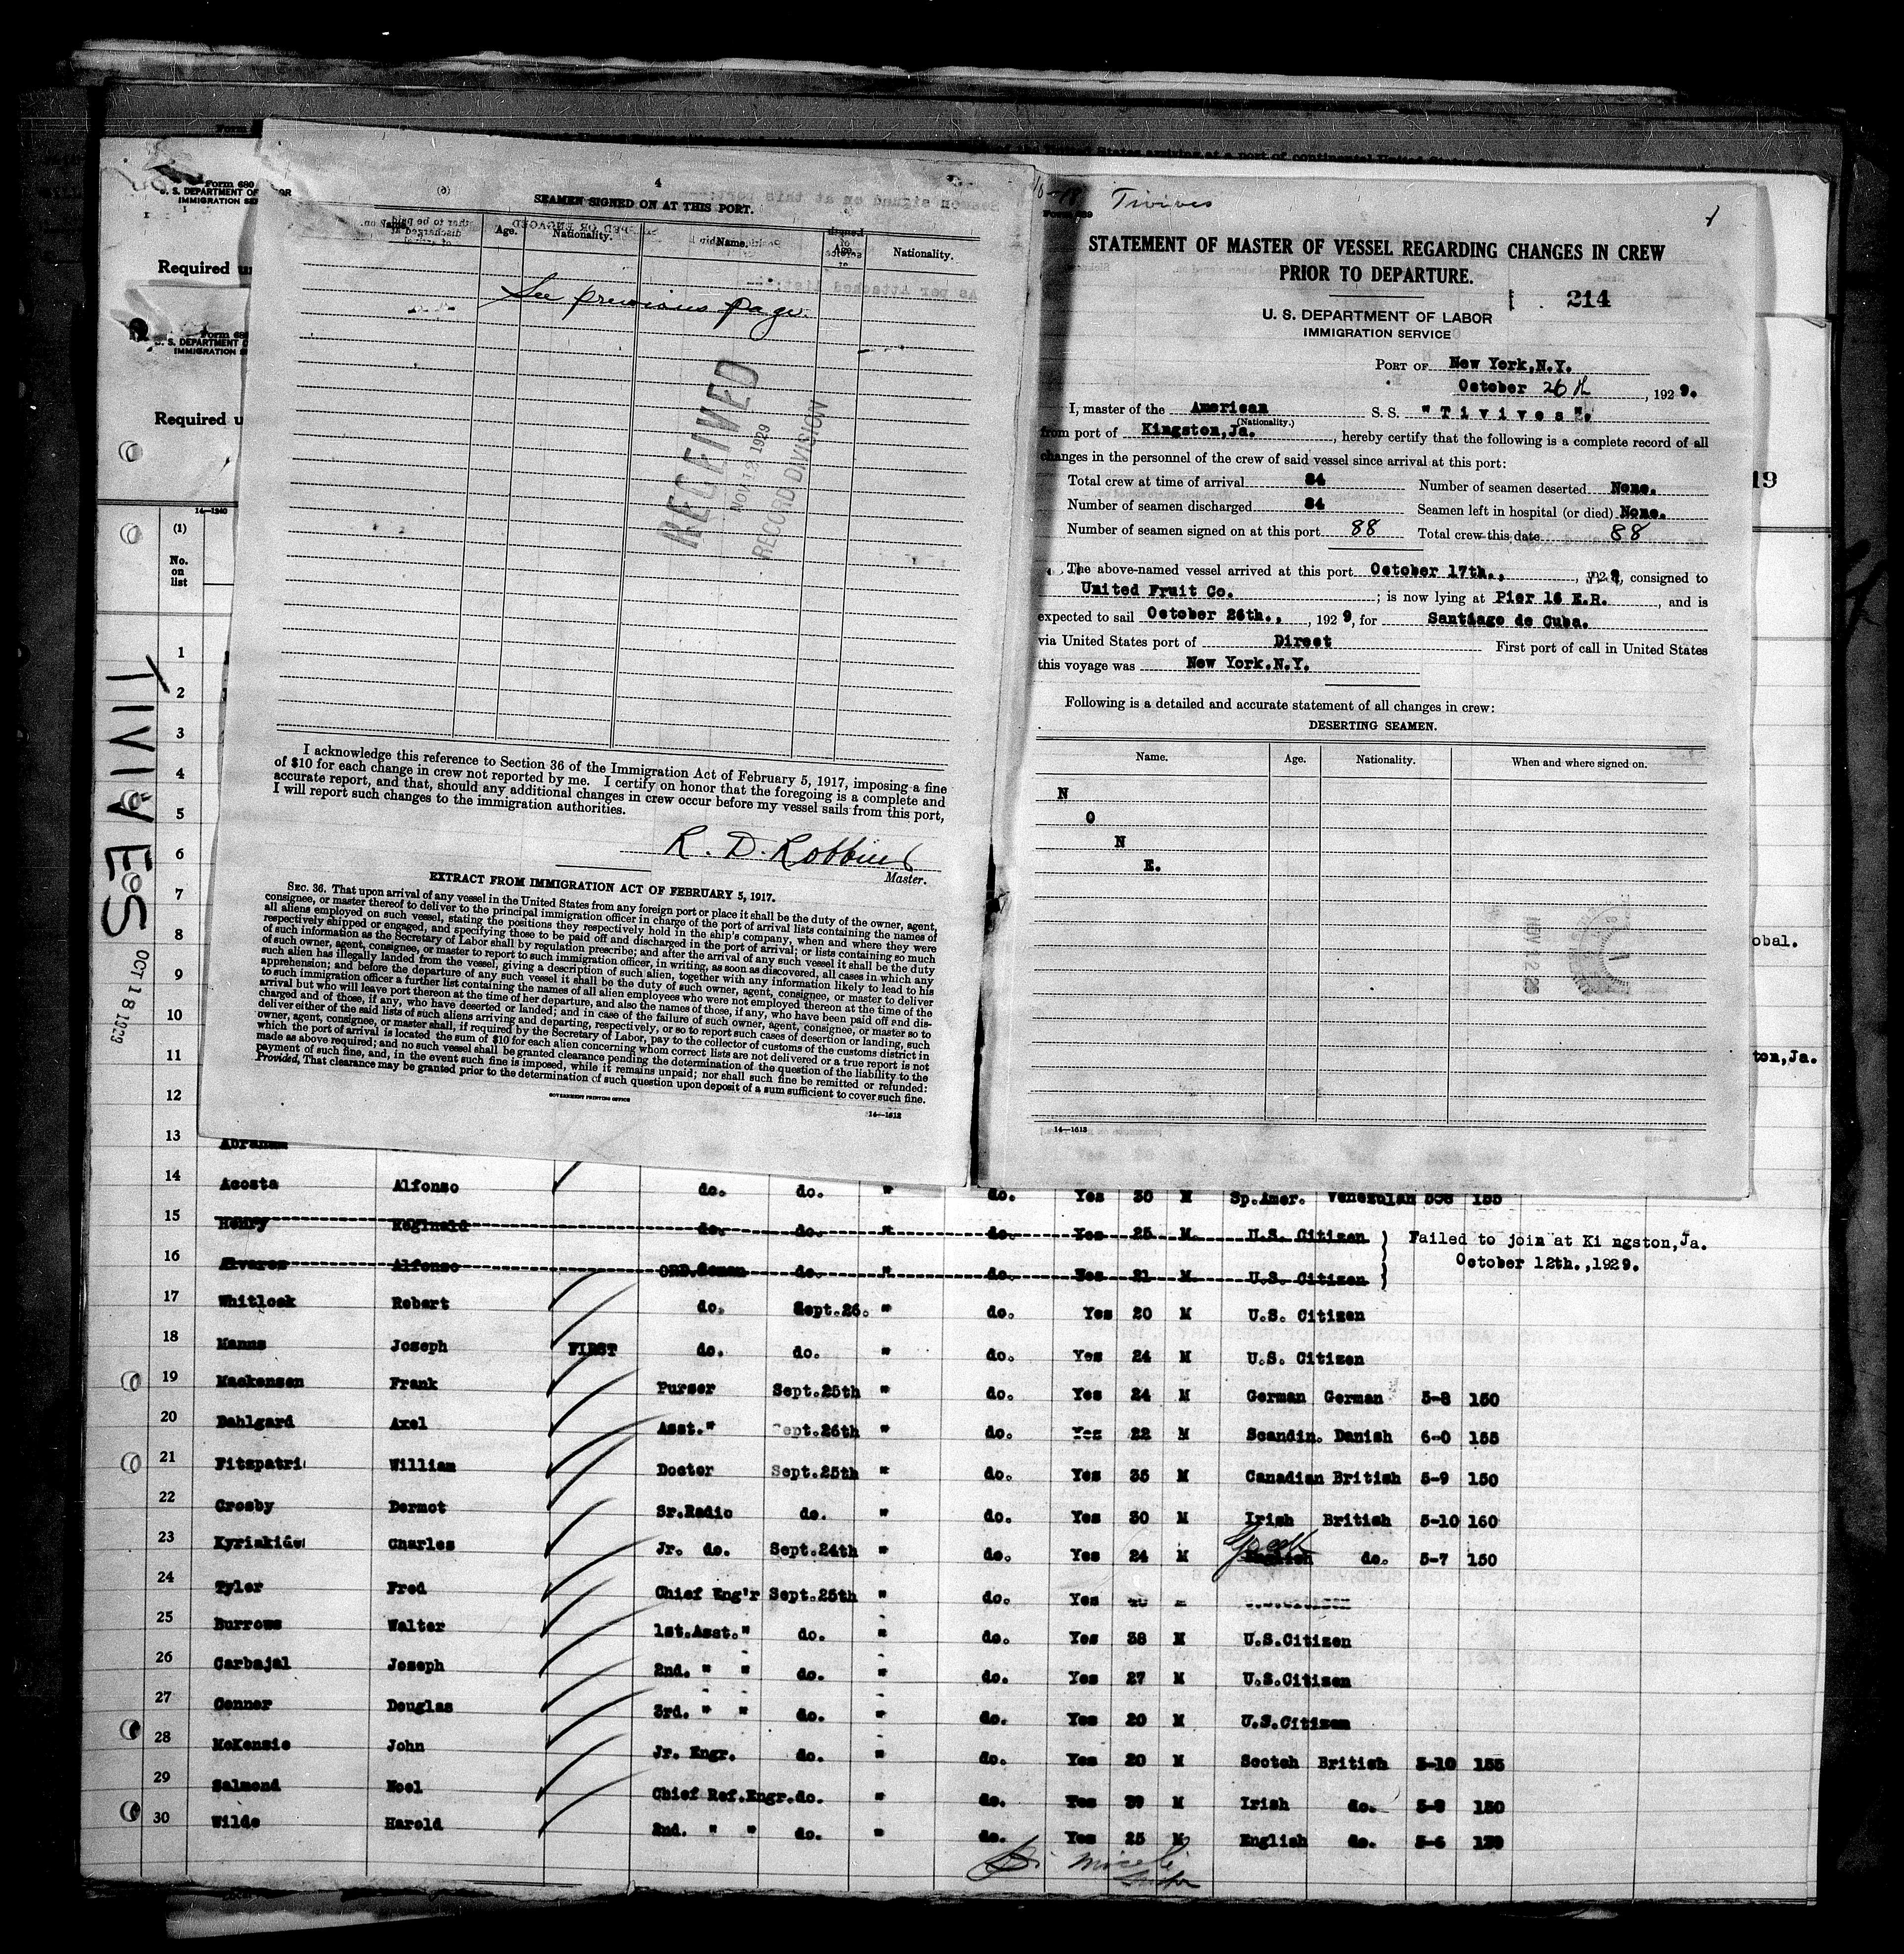 Form 680
U. S. DEPARTMENT OF LABOR
IMMIGRATION SE
Required u
Form 680
U. S. DEPARTMENT O
IMMIGRATION SE
Required u
14—1240
(1)
No.
on
list
TIVIVES
OCT 18 1929
4
(6)
SEAMEN SIGNED ON AT THIS PORT.
Name. Age. Nationality. Name. Age. Nationality.
See previous page.
RECEIVED
NOV 12 1929
RECORD DIVISION
I acknowledge this reference to Section 36 of the Immigration Act of February 5, 1917, imposing a fine
of $10 for each change in crew not reported by me. I certify on honor that the foregoing is a complete and
accurate report, and that, should any additional changes in crew occur before my vessel sails from this port,
I will report such changes to the immigration authorities.
R. D. Robbins
Master.
EXTRACT FROM IMMIGRATION ACT OF FEBRUARY 5, 1917.
SEC. 36. That upon arrival of any vessel in the United States from any foreign port or place it shall be the duty of the owner, agent,
consignee, or master thereof to deliver to the principal immigration officer in charge of the port of arrival lists containing the names of
all aliens employed on such vessel, stating the positions they respectively hold in the ship's company, when and where they were
respectively shipped or engaged, and specifying those to be paid off and discharged in the port of arrival; or lists containing so much
of such information as the Secretary of Labor shall by regulation prescribe; and after the arrival of any such vessel it shall be the duty
of such owner, agent, consignee, or master to report to such immigration officer, in writing, as soon as discovered, all cases in which any
such alien has illegally landed from the vessel, giving a description of such alien, together with any information likely to lead to his
apprehension; and before the departure of any such vessel it shall be the duty of such owner, agent, consignee, or master to deliver
to such immigration officer a further list containing the names of all alien employees who were not employed thereon at the time of the
arrival but who will leave port thereon at the time of her departure, and also the names of those, if any, who have been paid off and dis-
charged and of those, if any, who have deserted or landed; and in case of the failure of such owner, agent, consignee, or master so to
deliver either of the said lists of such aliens arriving and departing, respectively, or so to report such cases of desertion or landing, such
owner, agent, consignee, or master shall, if required by the Secretary of Labor, pay to the collector of customs of the customs district in
which the port of arrival is located the sum of $10 for each alien concerning whom correct lists are not delivered or a true report is not
made as above required; and no such vessel shall be granted clearance pending the determination of the question of the liability to the
payment of such fine, and, in the event such fine is imposed, while it remains unpaid; nor shall such fine be remitted or refunded:
Provided, That clearance may be granted prior to the determination of such question upon deposit of a sum sufficient to cover such fine.
GOVERNMENT PRINTING OFFICE
14—1613
Tivives
Form 689
STATEMENT OF MASTER OF VESSEL REGARDING CHANGES IN CREW
PRIOR TO DEPARTURE.
214
U. S. DEPARTMENT OF LABOR
IMMIGRATION SERVICE
PORT OF New York,N.Y.
October 26th, 1929.
I, master of the American S. S. "Tivives".
(Nationality.)
from port of Kingston,Ja., hereby certify that the following is a complete record of all
changes in the personnel of the crew of said vessel since arrival at this port:
Total crew at time of arrival 84 Number of seamen deserted None.
Number of seamen discharged 84 Seamen left in hospital (or died) None.
Number of seamen signed on at this port 88 Total crew this date 88
The above-named vessel arrived at this port October 17th., 1929, consigned to
United Fruit Co. ; is now lying at Pier 16 E.R., and is
expected to sail October 26th., 1929, for Santiago de Cuba.
via United States port of Direct First port of call in United States
this voyage was New York.N.Y.
Following is a detailed and accurate statement of all changes in crew:
DESERTING SEAMEN.
Name. Age. Nationality. When and where signed on.
N
O
N
E.
14—1613
19
obal.
ton,Ja.
1
2
3
4
5
6
7
8
9
10
11
12
13 Abraham
14 Acosta Alfonso do. do. " do. Yes 30 M Sp.Amer. Venezulan 506 155
15 Henry Reginald do. do. " do. Yes 25 M. U.S. Citizen } Failed to join at Ki ngston,Ja.
October 12th.,1929.
16 Alvares Alfonso ORD.Seman do. " do. Yes 21 M. U.S. Citizen
17 Whitlock Robert do. Sept.26. " do. Yes 20 M U.S. Citizen
18 Manns Joseph FIRST do. do. " do. Yes 24 M U.S. Citizen
19 Mackensen Frank Purser Sept.25th " do. Yes 24 M German German 5-8 150
20 Dahlgard Axel Asst." Sept.26th " do. Yes 22 M Scandin. Danish 6-0 155
21 Fitzpatri William Doctor Sept.25th " do. Yes 35 M Canadian British 5-9 150
22 Crosby Dermot Sr.Radio do. " do. Yes 30 M Irish British 5-10 160
23 Kyriakides Charles Jr. do. Sept.24th " do. Yes 24 M English Greek do. 5-7 150
24 Tyler Fred Chief Eng'r Sept.25th " do. Yes U.S.Citizen
25 Burrows Walter 1st.Asst." do. " do. Yes 38 M U.S.Citizen
26 Carbajal Joseph 2nd. " " do. " do. Yes 27 M U.S.Citizen
27 Conner Douglas 3rd. " " do. " do. Yes 20 M U.S.Citizen
28 McKensie John Jr. Engr. do. " do. Yes 20 M Scotch British 5-10 155
29 Salmond Noel Chief Ref.Engr.do. " do. Yes 39 M Irish do. 5-8 150
30 Wilde Harold 2nd. " " do. " do. Yes 25 M English do. 5-6 130